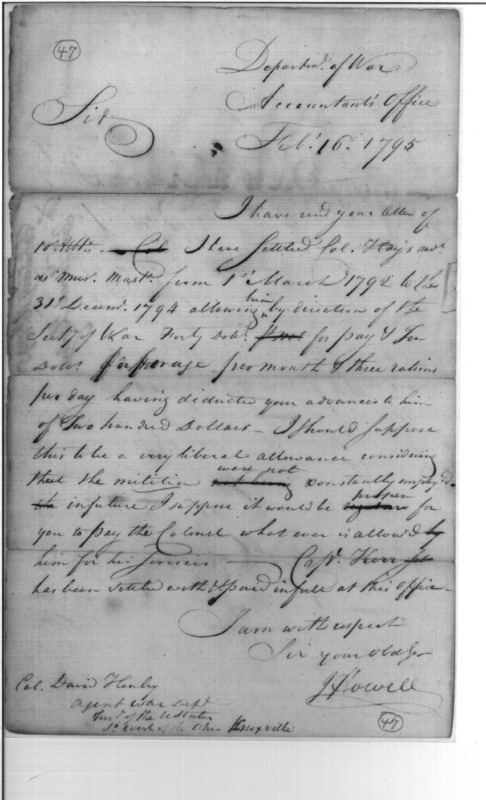 47
Departmt. of War
Accountant's Office
Feb. 16. 1795
Sir
I have recd your letter of
Col I have Settled Col. Hays acct
as Mus. Mastr. from 1st March 1792 to the
31st Decemr. 1794 allowing him by direction of the
Secty of War Forty Dolrs. for pay & Ten
Dolrs forage per month & three rations
per day having deducted your advances to him
of Two hundred Dollars - I should suppose
this to be a very liberal allowance considering
that the militia were not constantly employ'd
in future I suppose it would be proper for
you to pay the Colonel what ever is allowed by
him for his services - Capt. Kerr
has been settled with & paid in full at this office -
I am with respect
Sir your Obd Ser
J Howell
Col. David Henley
Agent War Dept
Terry. of the U States
So. West of the Ohio Knoxville
47